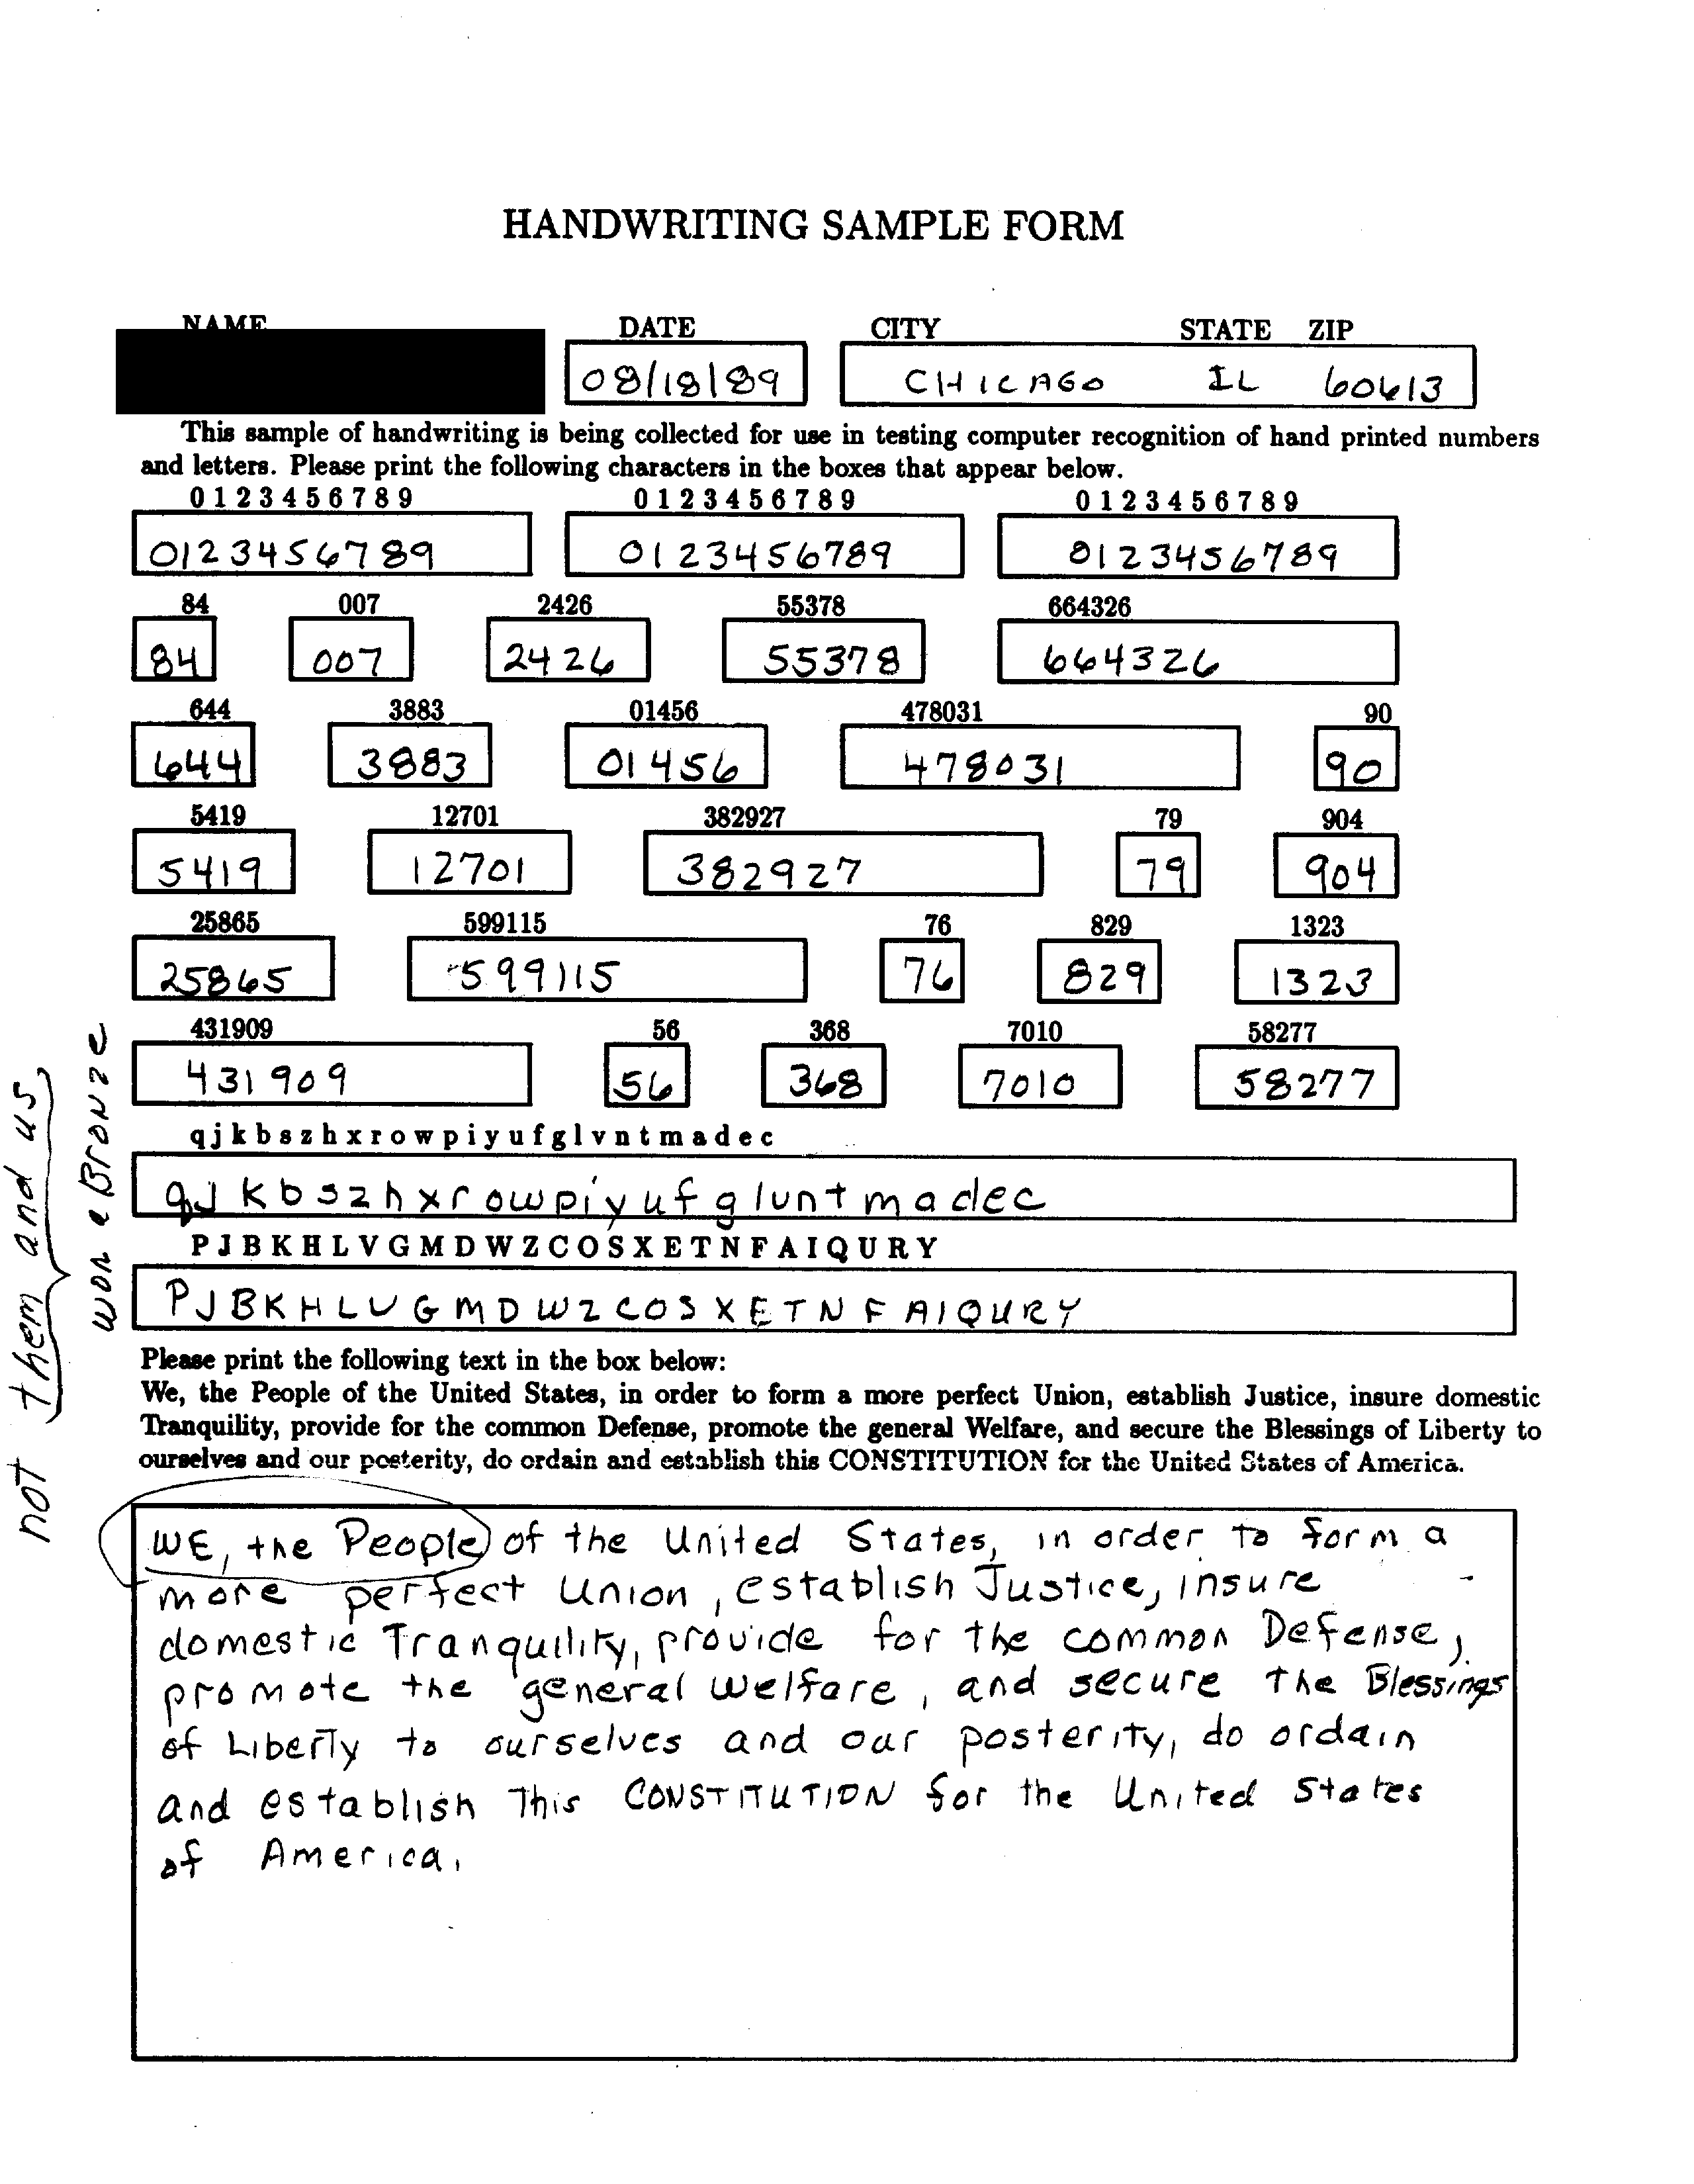 HANDWRITING SAMPLE FORM
NAME DATE CITY STATE ZIP
08/18/89 CHICAGO IL 60613
This sample of handwriting is being collected for use in testing computer recognition of hand printed numbers
and letters. Please print the following characters in the boxes that appear below.
0 1 2 3 4 5 6 7 8 9 0 1 2 3 4 5 6 7 8 9 0 1 2 3 4 5 6 7 8 9
0123456789 0123456789 0123456789
84 007 2426 55378 664326
84 007 2426 55378 664326
644 3883 01456 478031 90
644 3883 01456 478031 90
5419 12701 382927 79 904
5419 12701 382927 79 904
25865 599115 76 829 1323
25865 599115 76 829 1323
431909 56 368 7010 58277
431909 56 368 7010 58277
q j k b s z h x r o w p i y u f g l v n t m a d e c
q j k b s z h x r o w p i y u f g l u n t m a d e c
P J B K H L V G M D W Z C O S X E T N F A I Q U R Y
P J B K H L U G M D W Z C O S X E T N F A I Q U R Y
not them and us
won e Bronze
Please print the following text in the box below:
We, the People of the United States, in order to form a more perfect Union, establish Justice, insure domestic
Tranquility, provide for the common Defense, promote the general Welfare, and secure the Blessings of Liberty to
ourselves and our posterity, do ordain and establish this CONSTITUTION for the United States of America.
WE, the People of the United States, in order to form a
more perfect Union, establish Justice, insure
domestic Tranquility, provide for the common Defense,
promote the general welfare, and secure the Blessings
of Liberty to ourselves and our posterity, do ordain
and establish This CONSTITUTION for the United States
of America.